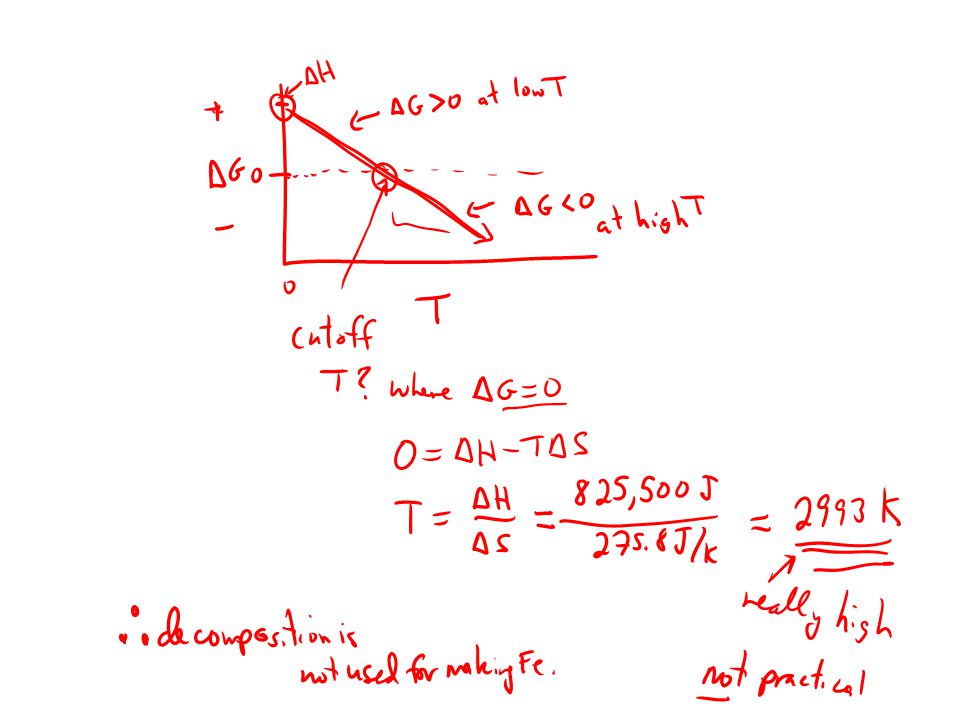 ΔH
+
ΔG>0 at low T
ΔG 0
ΔG<0 at high T
−
0
T
cutoff
T? where ΔG=0
0 = ΔH−TΔS
T = ΔH/ΔS = 825,500 J/275.8 J/K = 2993 K
really high
∴ decomposition is
not used for making Fe.
not practical